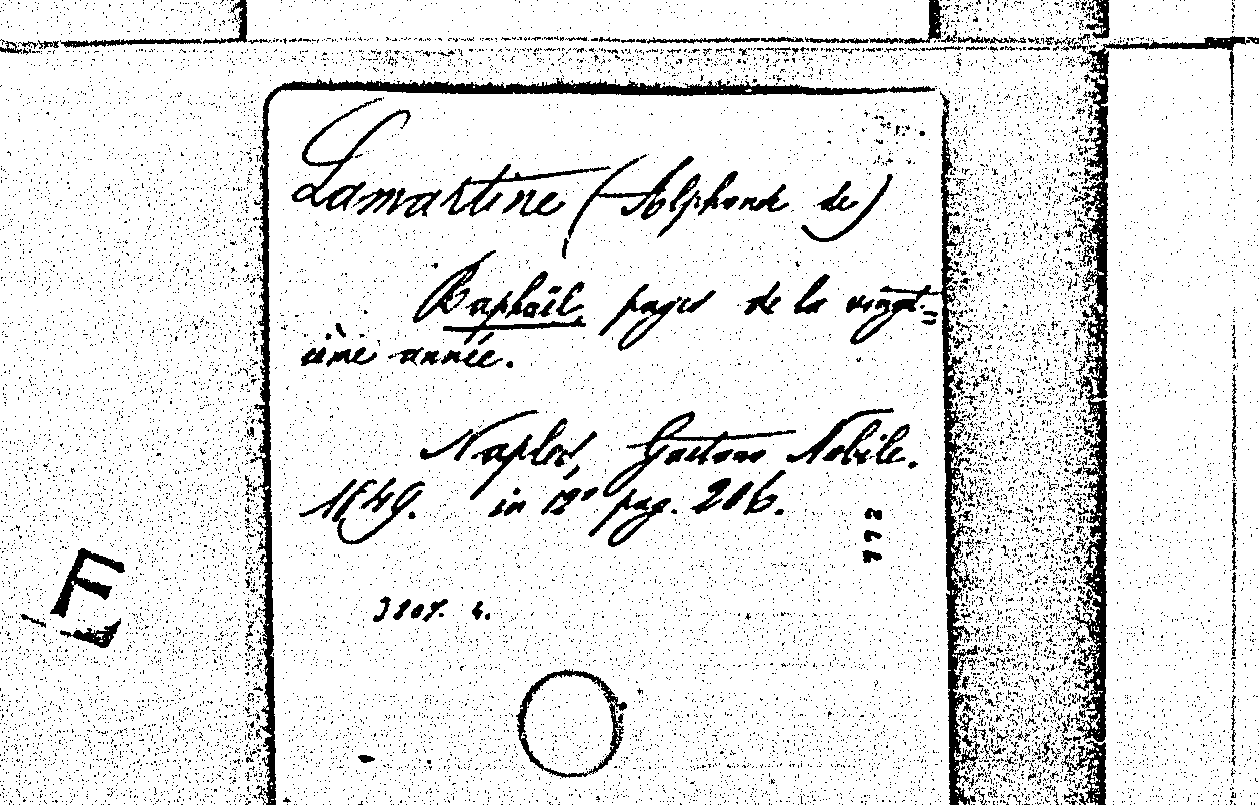 Lamartine (Alphonse de)
Raphaël, pages de la vingt=
ième année.
Naples, Gaetano Nobile.
1849. in 12º pag. 206.
772
E